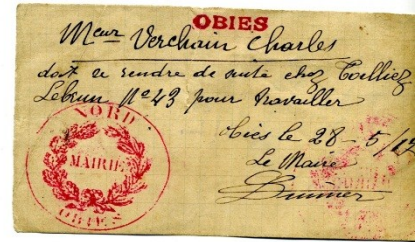 OBIES
Meur Verchain Charles
doit se rendre de suite chez Toilliez
Lebrun No 43 pour travailler
Obies le 28-5/17
Le Maire
NORD
MAIRIE
OBIES